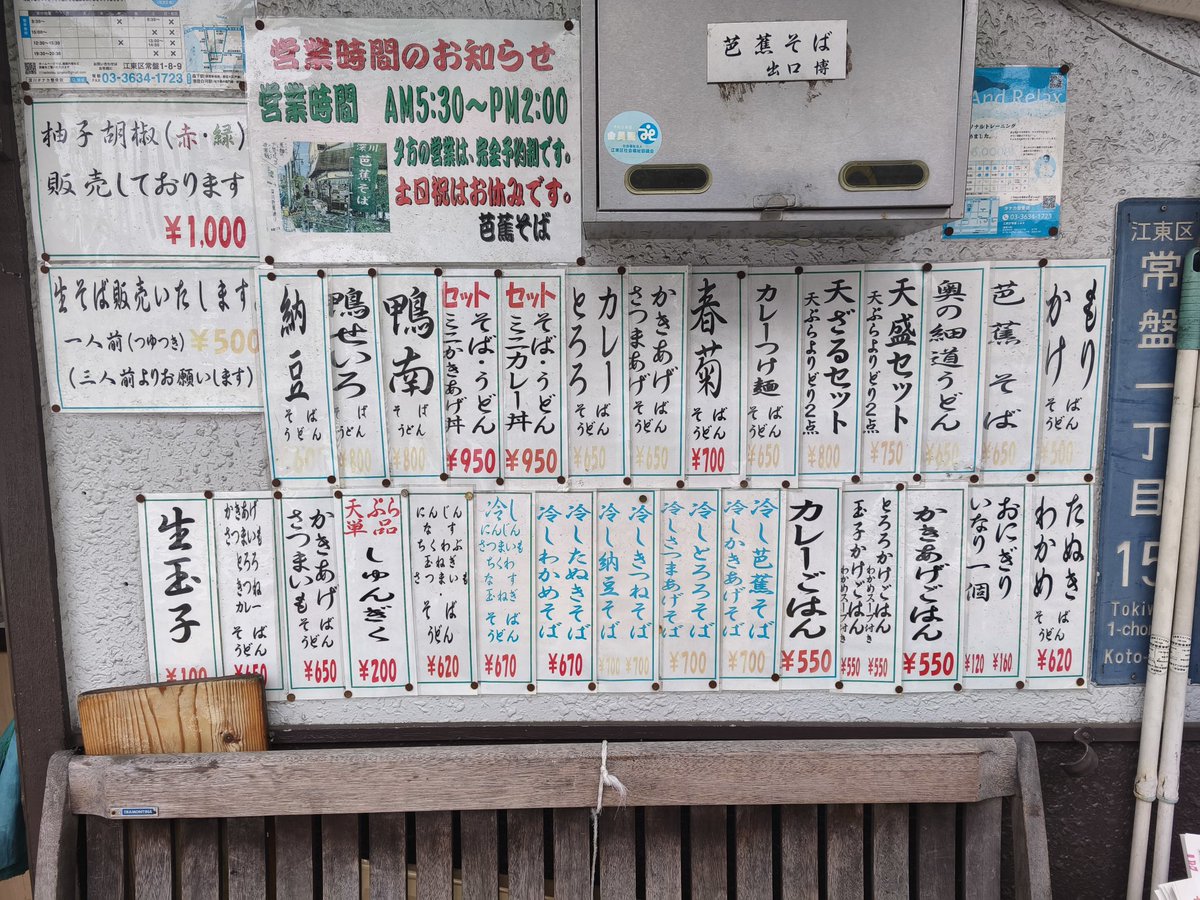 江東区常盤1-8-9
03-3634-1723
営業時間のお知らせ
営業時間 AM5:30〜PM2:00
夕方の営業は、完全予約制です。
土日祝はお休みです。
芭蕉そば
芭蕉そば
芭蕉そば
出口 博
And Relax
03-3634-1723
柚子胡椒(赤・緑)
販売しております
¥1,000
生そば販売いたします
一人前(つゆつき) ¥500
(三人前よりお願いします)
江東区
常盤一丁目
15
Tokiw
1-cho
Koto-
もり
かけ
そば
うどん
¥500
芭蕉そば
¥650
奥の細道うどん
¥650
天盛セット
天ぷらよりどり2点
¥750
天ざるセット
天ぷらよりどり2点
¥800
カレーつけ麺
そば
うどん
¥650
春菊
そば
うどん
¥700
かきあげ
さつまあげ
そば
うどん
¥650
カレー
とろろ
そば
うどん
¥650
セット
そば・うどん
ミニカレー丼
¥950
セット
そば・うどん
ミニかきあげ丼
¥950
鴨南
そば
うどん
¥800
鴨せいろ
そば
うどん
¥800
納豆
そば
うどん
たぬき
わかめ
そば
うどん
¥620
おにぎり
¥160
いなり一個
¥120
かきあげごはん
¥550
とろろかけごはん
わかめスープ付き
¥550
玉子かけごはん
わかめスープ付き
¥550
カレーごはん
¥550
冷し芭蕉そば
冷しかきあげそば
¥700
冷しとろろそば
冷しさつまあげそば
¥700
冷しきつねそば
¥700
冷し納豆そば
¥700
冷したぬきそば
冷しわかめそば
¥670
冷し
にんじん
さつまいも
ちくわ
なす
玉ねぎ
そば
うどん
¥670
にんじん
なす
ちくわぶ
玉ねぎ
さつまいも
そば
うどん
¥620
天ぷら
単品
しゅんぎく
¥200
かきあげ
さつまいも
そば
うどん
¥650
かきあげ
さつまいも
とろろ
きつね
カレー
そば
うどん
¥650
生玉子
¥100
TRAMONTINA